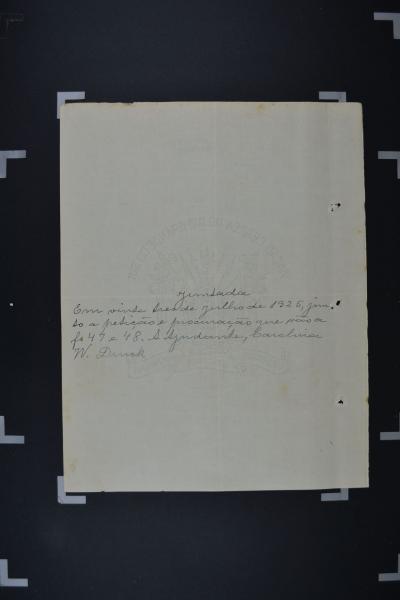 Juntada
Em vinte tres de julho de 1925, jun
to a petição e procuração que vão a
fs 47 e 48. A Ajudante, Carolina
W. Druck